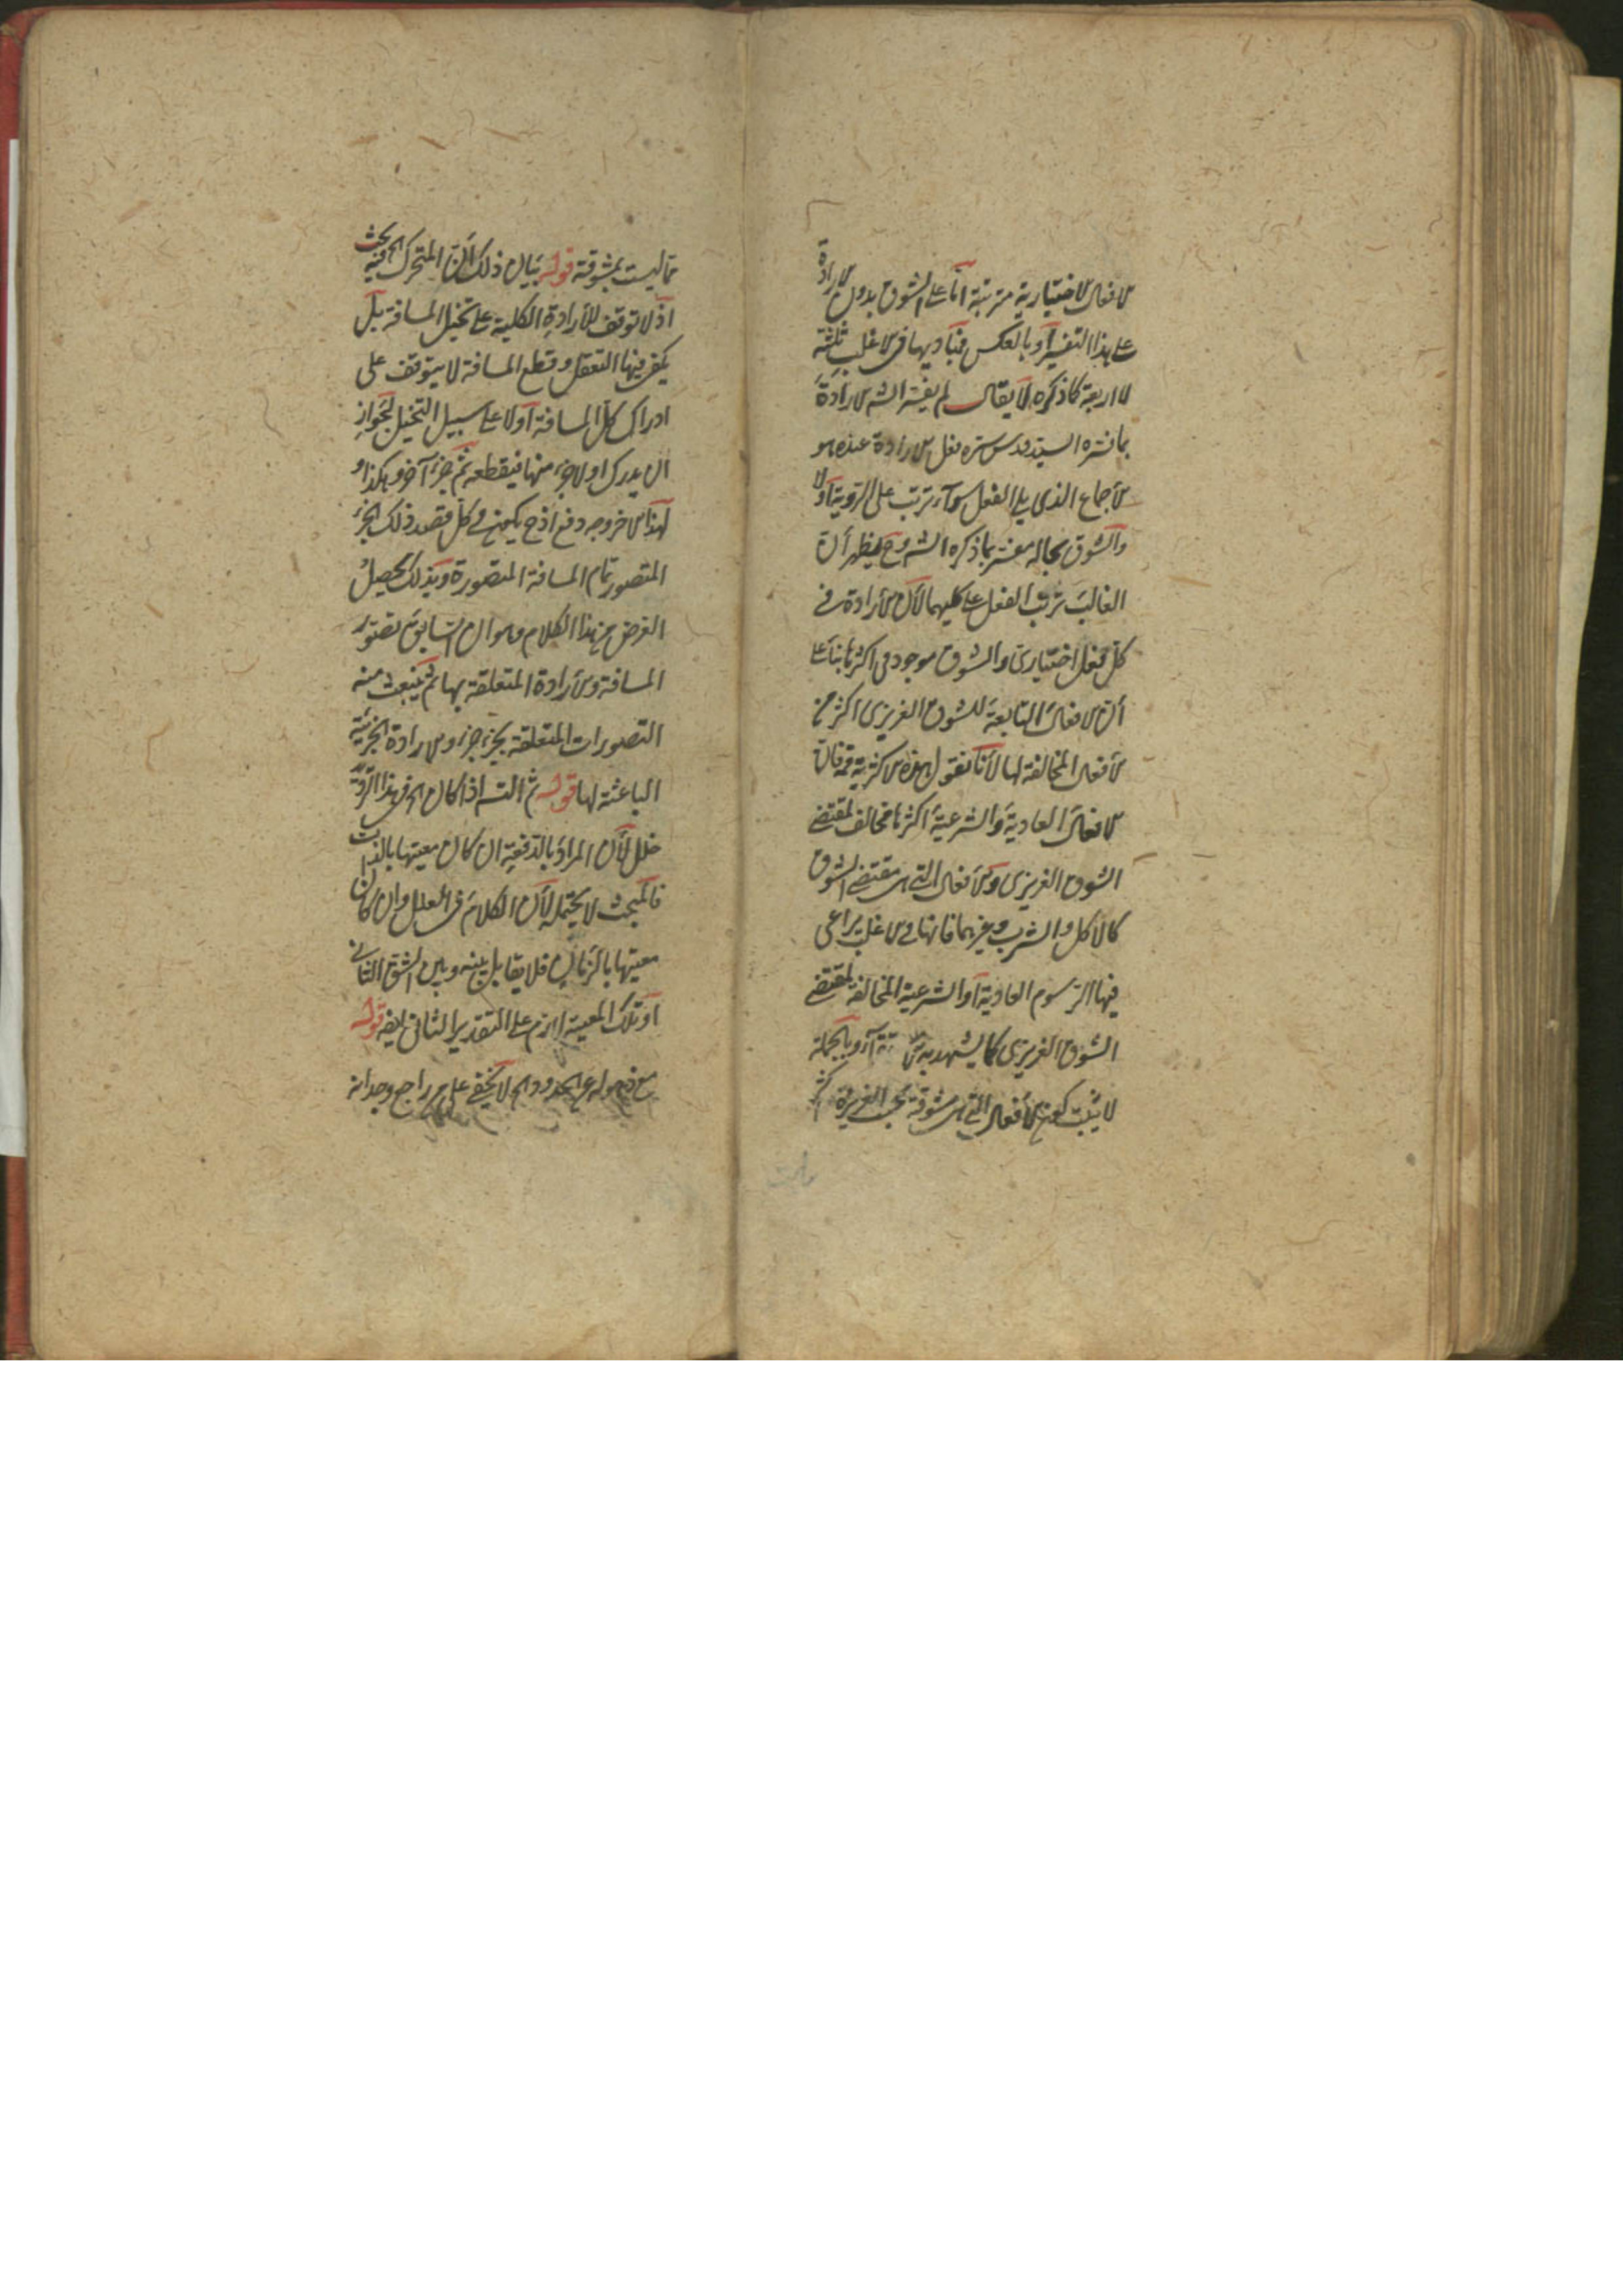 الافعال الاختيارية مترتبة اما على الشوق بدون الارادة
على هذا التفسير او بالعكس فمباديها فى الاغلب ثلثة
لا اربعة كما ذكره لا يقال لم يفسر الش الارادة
بما فسره السيد قدس سره فعل الارادة عنده هو
الاجماع الذى يلى الفعل سوآء ترتب على الروية اولا
والشوق بحاله مفسر بما ذكره الش وح يظهر أن
الغالب ترتب الفعل على كليهما لان الارادة فى
كل فعل اختيارى والشوق موجود فى اكثرها بناء على
أن الافعال التابعة للشوق الغريزى اكثر من
الافعال المخالفة لها لأنا نقول هذه الاكثرية ثمه فان
الافعال العادية والشرعية اكثرها مخالف لمقتضى
الشوق الغريزى والافعال التى هى مقتضى الشوق
كالاكل والشرب وغيرهما فانها فى الاغلب يراعى
فيها الرسوم العادية او الشرعية المخالفة لمقتضى
الشوق الغريزى كما يشهد به وبالجملة
لا يثبت كون الافعال التى هى مشوقة بحسب الغريزة اكثر
مما ليست بمشوقة قوله بيان ذلك أن المتحرك الخ فيه بحث
اذ لا توقف للارادة الكلية على تخيل المسافة بل
يكفى فيها التعقل وقطع المسافة لا يتوقف على
ادراك كل المسافة أولا على سبيل التخيل لجواز
ان يدرك اولا جزء منها فيقطعه ثم جزء آخر وهكذا و
لهذا الاخر وجه دفع اذ ح يكون فى كل قصد ذلك الجزء
المتصور تمام المسافة المتصورة وبذلك يحصل
الغرض من هذا الكلام وهو ان السابق تصور
المسافة والارادة المتعلقة بها ثم ينبعث منه
التصورات المتعلقة بجزء جزء والارادة الجزئية
الباعثة لها قوله ثم الش اذا كان الخ فى هذا
خلل لأن المراد بالدفعة ان كان معيتها بالذات
فالمبحث لا يحتمله لأن الكلام فى العلل وان كان
معيتها بالزمان فلا يقابل بينه وبين الشق الثانى
اذ تلك المعية لازم على التقدير الثانى ايضه قوله
مع ذهوله عن الحدود الخ لا يخفى على من راجع وجدانه